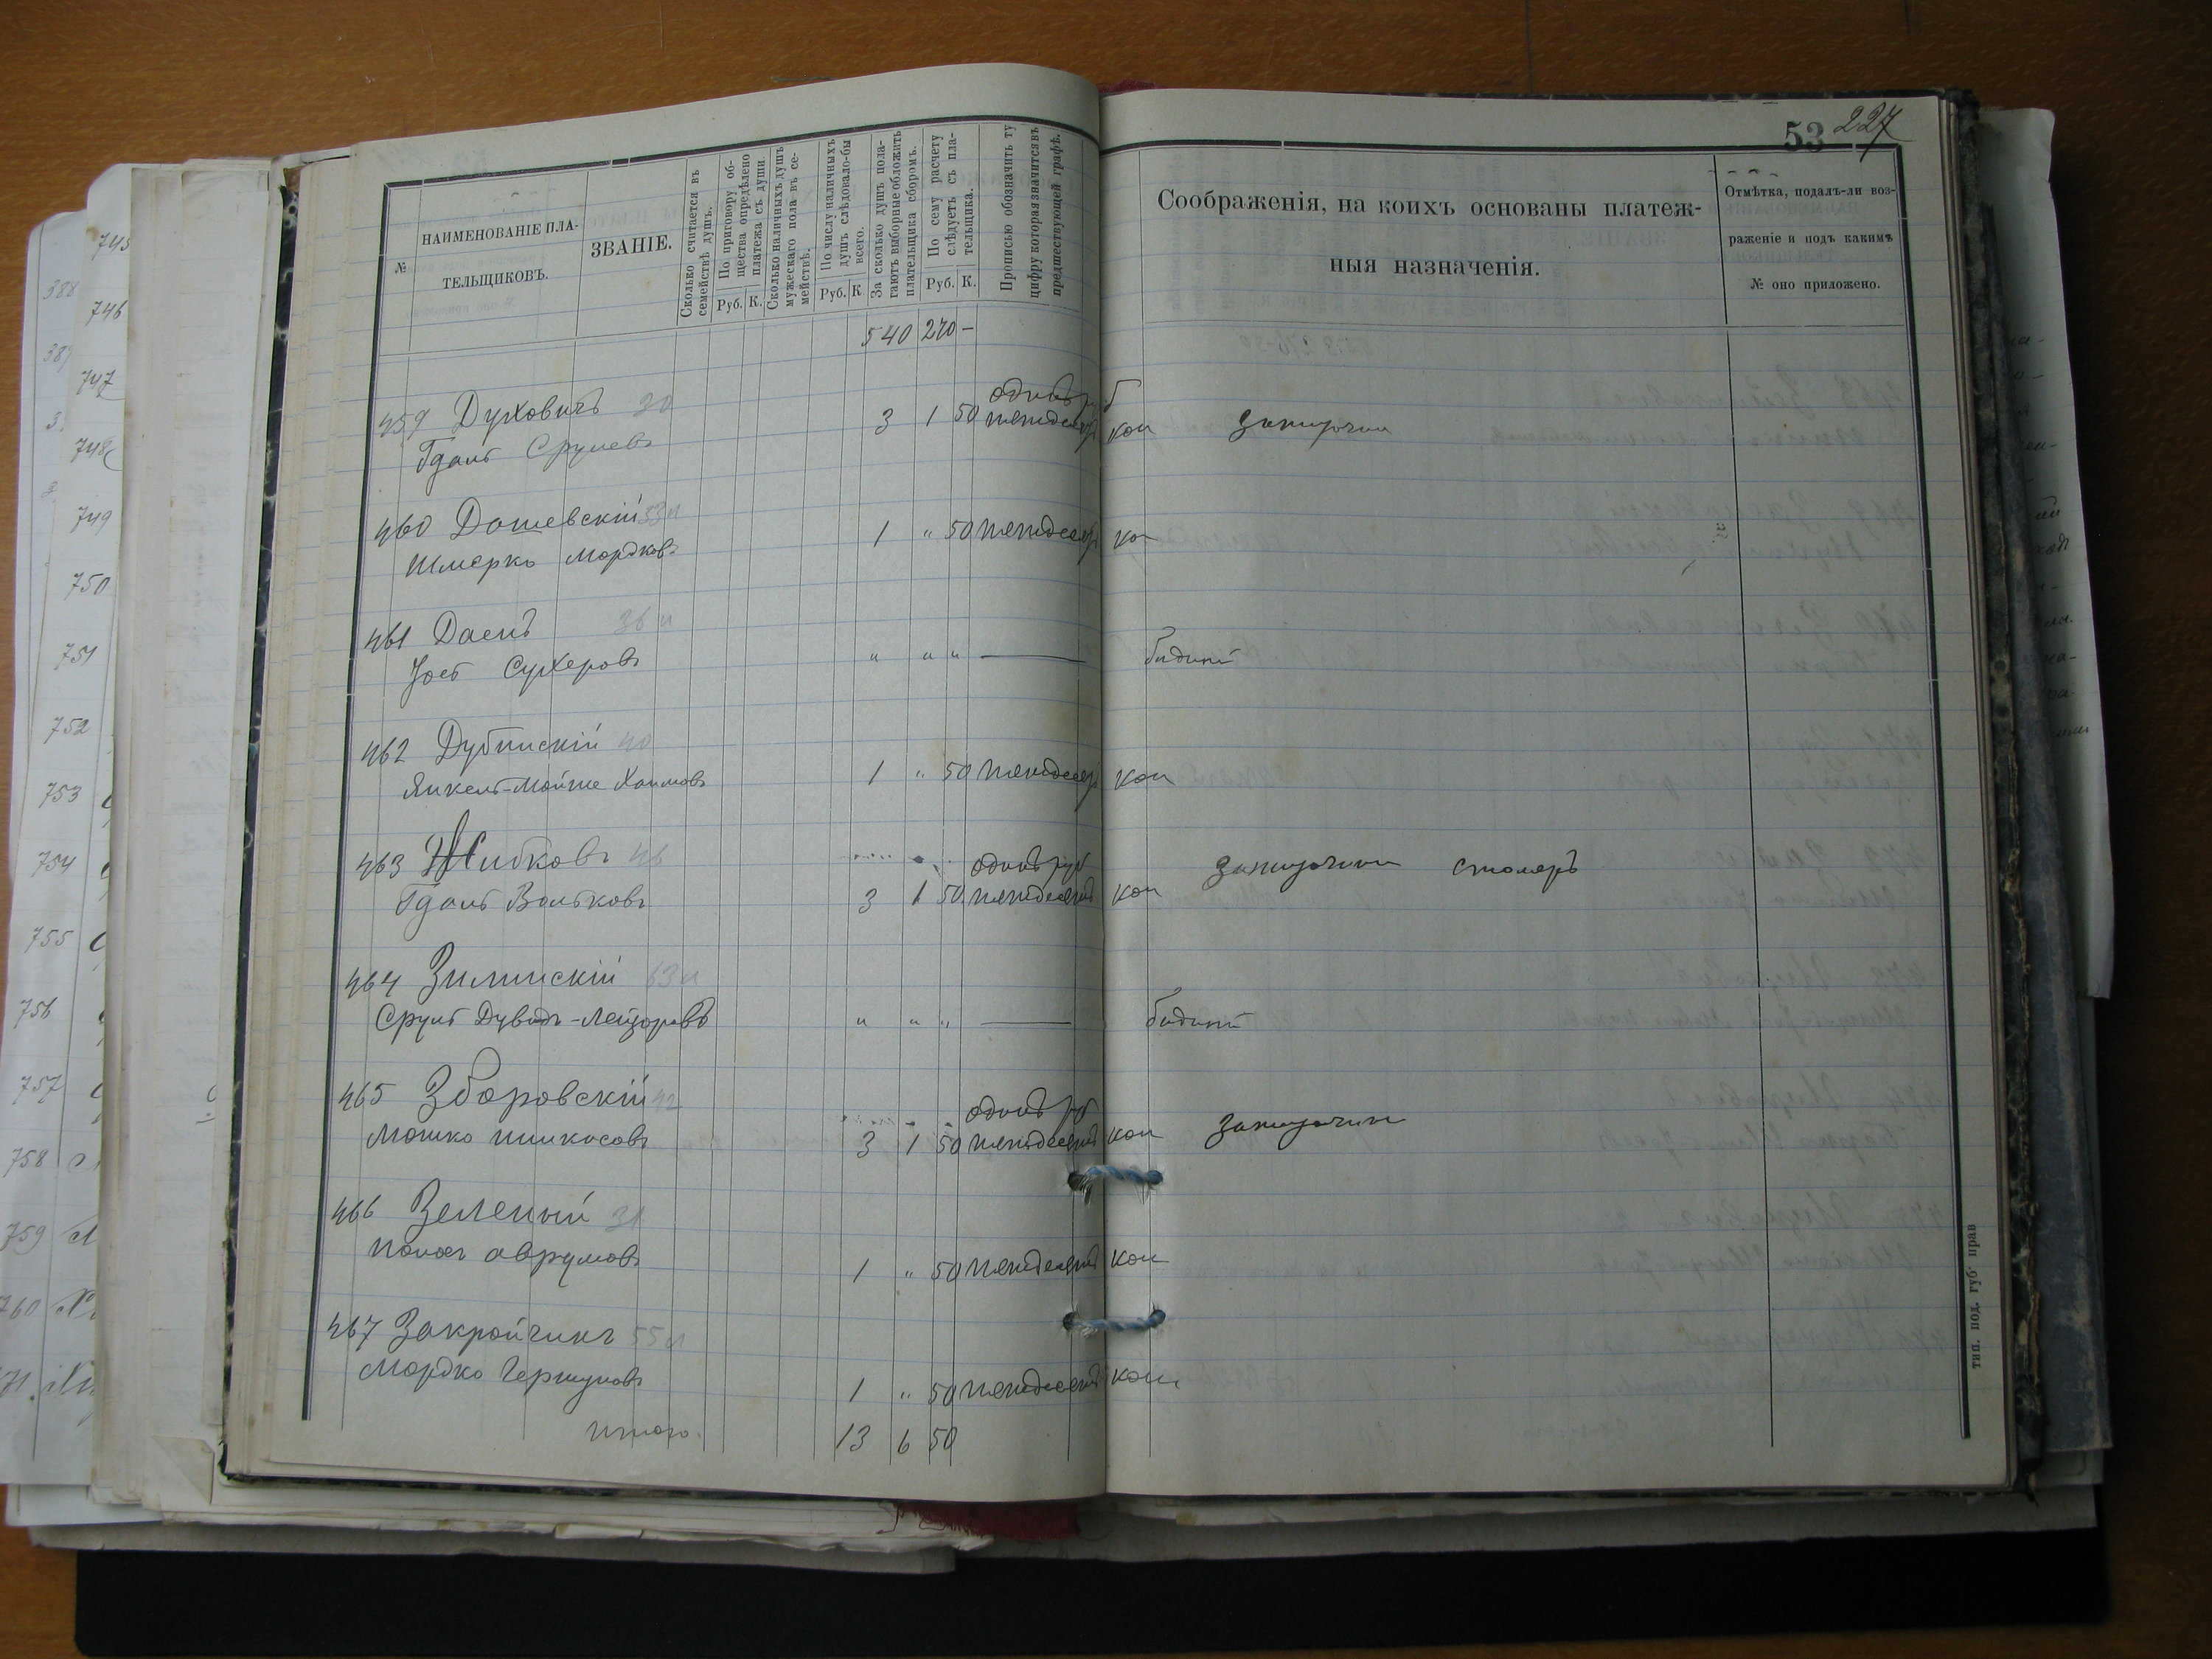 53 227
№
НАИМЕНОВАНІЕ ПЛА-
ТЕЛЬЩИКОВЪ.
ЗВАНІЕ.
Сколько считается въ
семействѣ душъ.
По приговору об-
щества опредѣлено
платежа съ души.
Руб. К.
Сколько наличныхъ душъ
мужескаго пола въ се-
мействѣ.
По числу наличныхъ
душъ слѣдовало-бы
всего.
Руб. К
За сколько душъ пола-
гаютъ выборные обложить
плательщика сборомъ.
По сему расчету
слѣдуетъ съ пла-
тельщика.
Руб. К.
Прописью обозначить ту
цифру которая значится въ
предшествующей графѣ.
Соображенія, на коихъ основаны платеж-
ныя назначенія.
Отмѣтка, подалъ-ли воз-
раженіе и подъ какимъ
№ оно приложено.
540 270 –
459 Духовичъ 30 одинъ р
Гдаль Срулевъ 3 1 50 пятьдесят коп зажиточни
460 Дашевскій 53
Шмерко Мордковъ 1 " 50 пятьдесят ко
461 Даенъ 36
Іось Сухеровъ " " " — бидный
462 Дубинскій 40
Янкель-Мойше Хаимовъ 1 " 50 пятьдесят коп
463 Жибковъ 46 одинъ руб
Гдаль Вольковъ 3 1 50 пятьдесят коп зажиточни столяръ
464 Зилинскій 63
Сруль Дувидъ-Лейзоровъ " " " — бидный
465 Зборовскій 42 одинъ р
Мошко Пинхосовъ 3 1 50 пятьдесят коп зажиточни
466 Зеленый 31
Аврумовъ 1 " 50 пятьдесят коп
467 Закройчикъ 55
Мордко Гершуновъ 1 " 50 пятьдесят коп
итого 13 6 50
тип. под. губ. прав
745
746
747
748
749
750
751
752
753
754
755
756
757
758
759
760